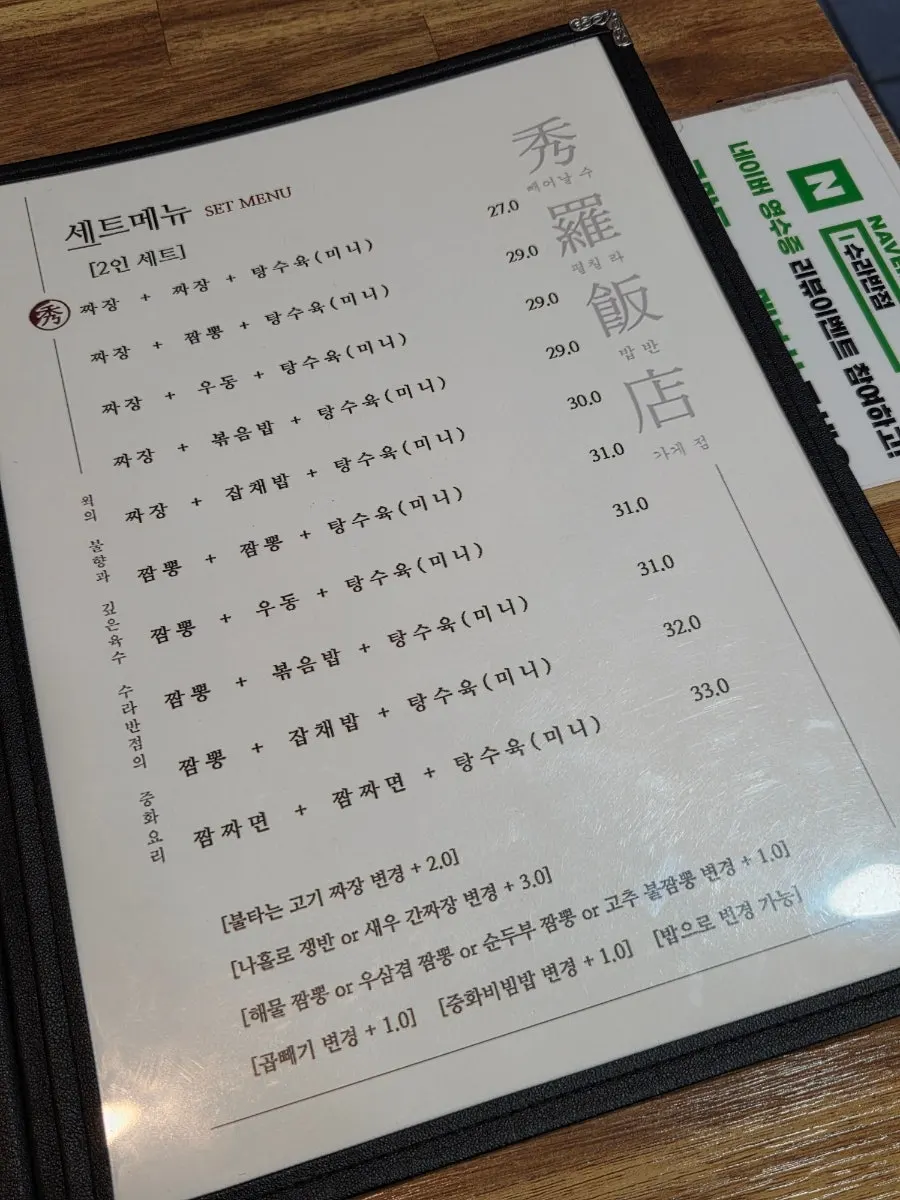 세트메뉴 SET MENU
[2인 세트]
짜장 + 짜장 + 탕수육(미니) 27.0
짜장 + 짬뽕 + 탕수육(미니) 29.0
짜장 + 우동 + 탕수육(미니) 29.0
짜장 + 볶음밥 + 탕수육(미니) 29.0
짜장 + 잡채밥 + 탕수육(미니) 30.0
짬뽕 + 짬뽕 + 탕수육(미니) 31.0
짬뽕 + 우동 + 탕수육(미니) 31.0
짬뽕 + 볶음밥 + 탕수육(미니) 31.0
짬뽕 + 잡채밥 + 탕수육(미니) 32.0
짬짜면 + 짬짜면 + 탕수육(미니) 33.0
[불타는 고기 짜장 변경 + 2.0]
[나홀로 쟁반 or 새우 간짜장 변경 + 3.0]
[해물 짬뽕 or 우삼겹 짬뽕 or 순두부 짬뽕 or 고추 불짬뽕 변경 + 1.0]
[곱빼기 변경 + 1.0] [중화비빔밥 변경 + 1.0] [밥으로 변경 가능]
秀
웍의 불향과 깊은육수 수라반점의 중화요리
秀
빼어날 수
羅
펼칠 라
飯
밥 반
店
가게 점
N
NAVE
수라반점
네이버 영수증 리뷰이벤트 참여하고!